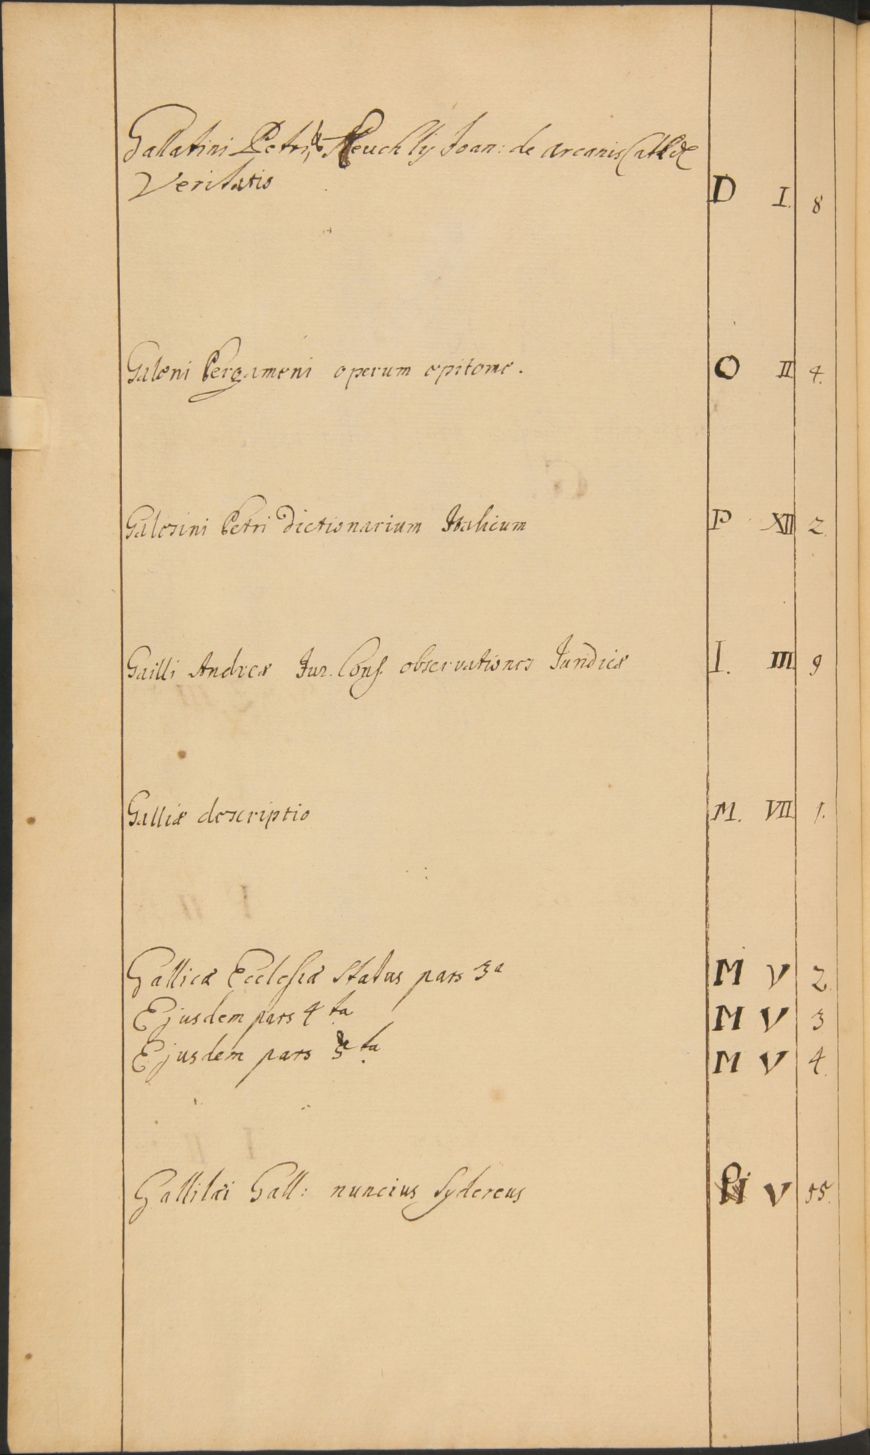 Gallatini Petri, & Reuchlÿ Joan: de arcanis Cathcæ
Veritatis D I. 8
Galeni Pergameni operum epitome. O II 4.
Galesini Petri Dictionarium Italicum P XII 2
Gailli Andreæ Jur. Cons. observationes Juridicæ I. III 9
Galliæ descriptio M. VII 1.
Gallicæ Ecclesiæ Status pars 3ª M V 2
Ejusdem pars 4 ta M V 3
Ejusdem pars 5 ta. M V 4.
Gallilæi Gall: nuncius Sydereus V 55.